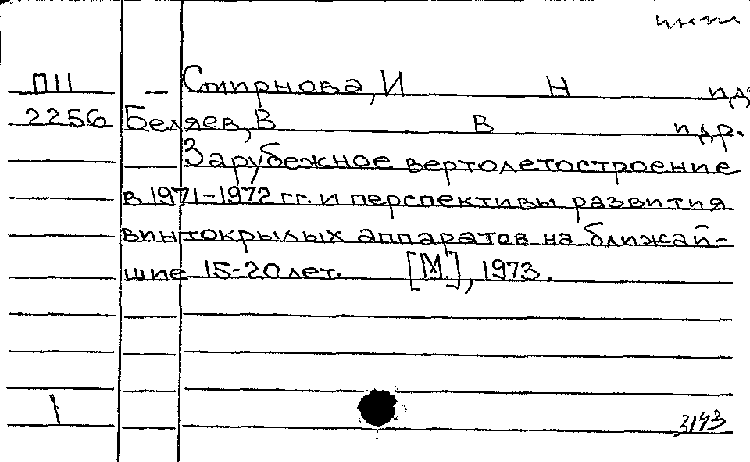 ПII – Смирнова, И Н и др.
2256 Беляев, В В и др.
Зарубежное вертолетостроение
в 1971–1972 гг. и перспективы развития
винтокрылых аппаратов на ближай-
шие 15-20 лет. [М.], 1973.
1 3143